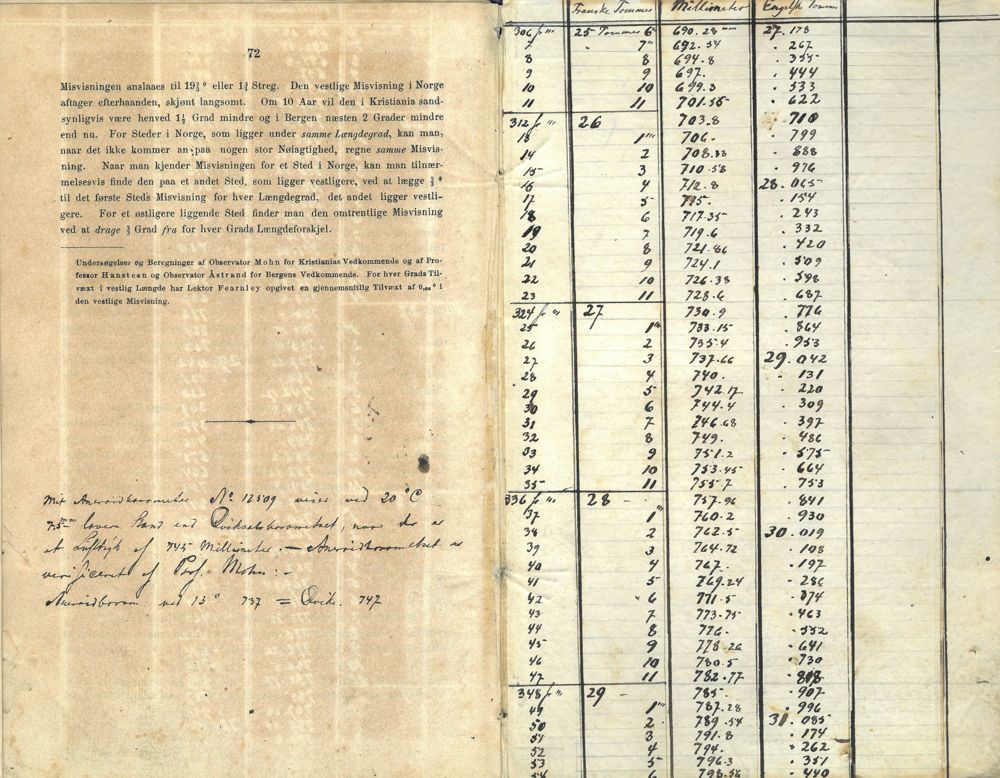 72
Misvisningen anslaaes til 19⅔° eller 1¾ Streg. Den vestlige Misvisning i Norge
aftager efterhaanden, skjønt langsomt. Om 10 Aar vil den i Kristiania sand-
synligvis være henved 1½ Grad mindre og i Bergen næsten 2 Grader mindre
end nu. For Steder i Norge, som ligger under samme Længdegrad, kan man,
naar det ikke kommer an paa nogen stor Nøiagtighed, regne samme Misvis-
ning. Naar man kjender Misvisningen for et Sted i Norge, kan man tilnær-
melsesvis finde den paa et andet Sted, som ligger vestligere, ved at lægge ⅔°
til det første Steds Misvisning for hver Længdegrad, det andet ligger vestli-
gere. For et østligere liggende Sted finder man den omtrentlige Misvisning
ved at drage ⅔ Grad fra for hver Grads Længdeforskjel.
Undersøgelser og Beregninger af Observator Mohn for Kristianias Vedkommende og af Pro-
fessor Hansteen og Observator Åstrand for Bergens Vedkommende. For hver Grads Til-
væxt i vestlig Længde har Lektor Fearnley opgivet en gjennemsnitlig Tilvæxt af i
den vestlige Misvisning.
Mit Aneroidbarometer No 12509 viser ved 20°C
lavere Stand end Qviksølvbarometret, naar der er
et Lufttryk af 745 Millimeter. — Aneroidbarometret er
verificeret af Prof. Mohn: -
Aneroidbarom. ved 13° 737 = Qviks. 747
Franske Tommer Millimeter Engelske Tommer
306 fr ''' 25 Tommer 6 690.28 mm 27.178
7 " 7''' 692.54 . 267
8 8 694.8 . 355
9 9 697. . 444
10 10 699.3 . 533
11 11 701.55 . 622
312 fr ''' 26 703.8 . 710
13 1''' 706. . 799
14 2 708.33 . 888
15 3 710.58 . 976
16 4 712.8 28.065
17 5 715. . 154
18 6 717.35 . 243
19 7 719.6 . 332
20 8 721.86 . 420
21 9 724.1 . 509
22 10 726.38 . 598
23 11 728.6 . 687
324 fr ''' 27 730.9 . 776
25 1''' 733.15 . 864
26 2 735.4 . 953
27 3 737.66 29.042
28 4 740. . 131
29 5 742.17 . 220
30 6 744.4 . 309
31 7 746.68 . 397
32 8 749. . 486
33 9 751.2 . 575
34 10 753.45 . 664
35 11 755.7 . 753
336 fr ''' 28 - 757.96 . 841
37 1''' 760.2 . 930
38 2 762.5 30.019
39 3 764.72 . 108
40 4 767. . 197
41 5 769.24 . 286
42 6 771.5 . 374
43 7 773.75 . 463
44 8 776. . 552
45 9 778.26 . 641
46 10 780.5 . 730
47 11 782.77 . 818
348 fr ''' 29 - 785. . 907
49 1''' 787.28 . 996
50 2 789.54 31.085
51 3 791.8 . 174
52 4 794. . 262
53 5 796.3 . 351
54 6 798.56 . 440